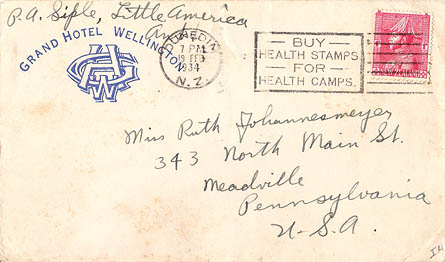 P.A. Siple, Little America
GRAND HOTEL WELLINGTON
DUNEDIN
7 PM
1934
N.Z.
BUY
HEALTH STAMPS
FOR
HEALTH CAMPS.
Miss Ruth Johannesmeyer
343 North Main St.
Meadville
Pennsylvania
U.S.A.